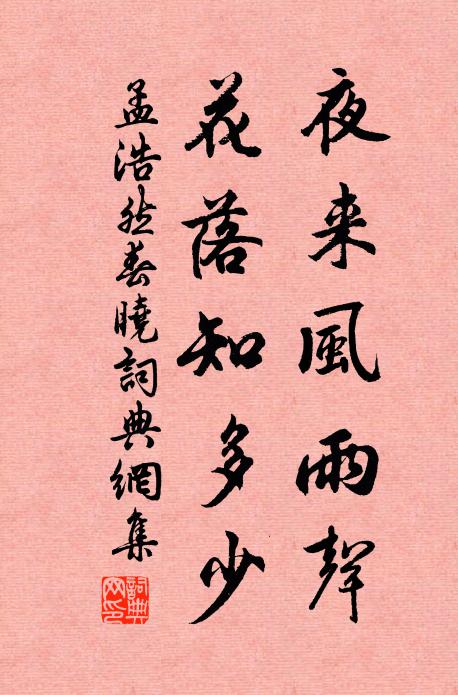 夜来風雨聲
花落知多少
孟浩然春曉詞典網集
詞典網印